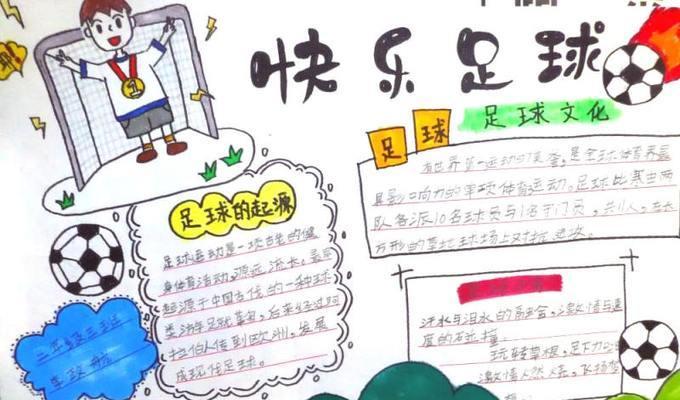 快乐足球
足球文化
足球
有世界第一运动的美誉,是全球体育界最
具影响力的单项体育运动。足球比赛由两
队各派10名球员与1名守门员,共11人,在长
方形的草地球场上对抗、进攻。
足球的起源
足球运动是一项古老的健
身体育活动,源远流长。最早
起源于中国古代的一种球
类游戏"蹴鞠",后来经过阿
拉伯人传到欧洲,发展
成现代足球。
汗水与泪水的融会,激情与速
度的碰撞。
玩转掌握,足下力
激情燃烧,飞扬
二年级三班